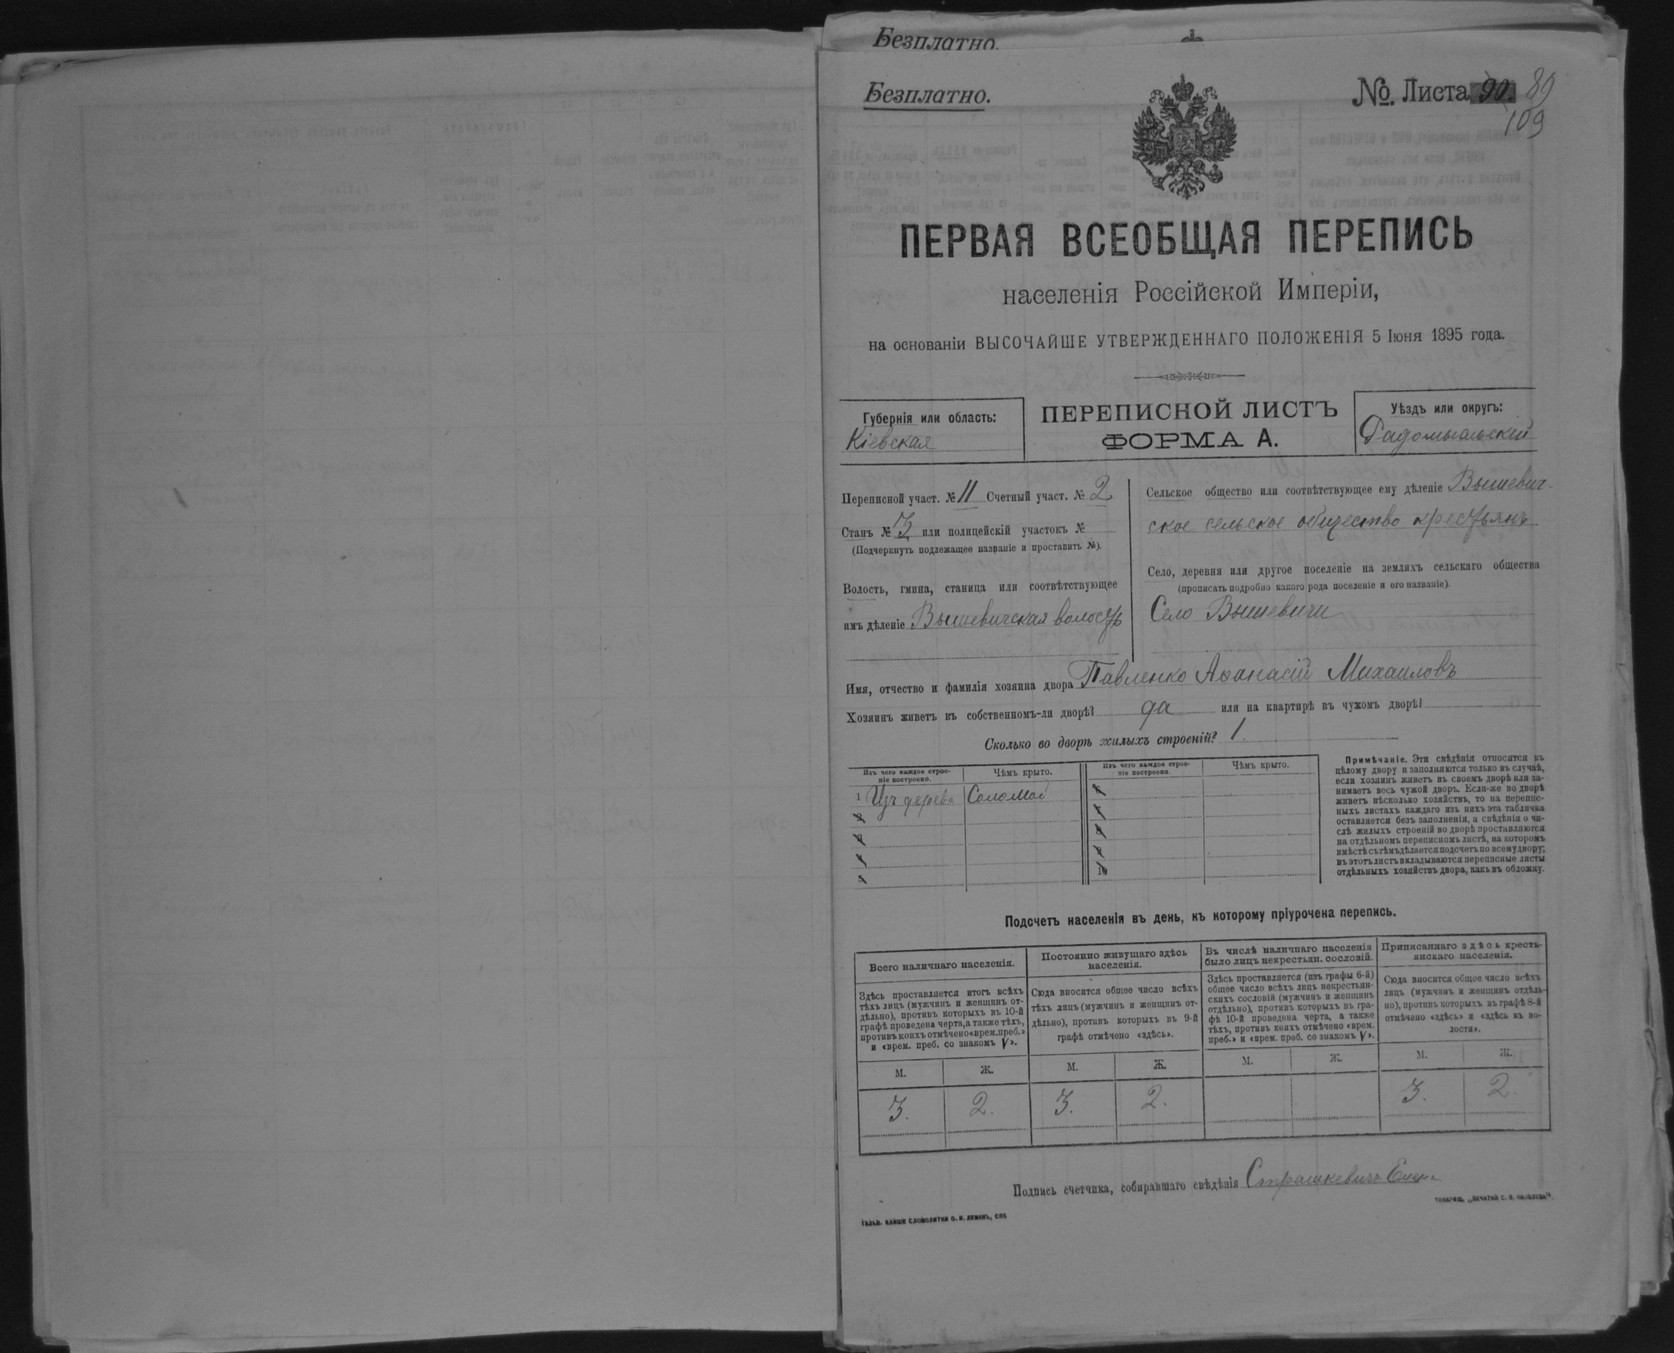 Безплатно.
Безплатно.
№ Листа 90. 89
109
ПЕРВАЯ ВСЕОБЩАЯ ПЕРЕПИСЬ
населенія Россійской Имперіи,
на основаніи ВЫСОЧАЙШЕ УТВЕРЖДЕННАГО ПОЛОЖЕНІЯ 5 Іюня 1895 года.
Губернія или область:
Кіевская
ПЕРЕПИСНОЙ ЛИСТЪ
ФОРМА А.
Уѣздъ или округъ:
Радомысльскій
Переписной участ. № 11 Счетный участ. № 2
Станъ № 3 или полицейскій участокъ №
(Подчеркнуть подлежащее названіе и проставить №).
Волость, гмина, станица или соотвѣтствующее
имъ дѣленіе Вышевичская волость
Сельское общество или соотвѣтствующее ему дѣленіе Вышевич-
ское сельское общество крестьянъ
Село, деревня или другое поселеніе на земляхъ сельскаго общества
(прописать подробно какого рода поселеніе и его названіе).
Село Вышевичи
Имя, отчество и фамилія хозяина двора Павленко Аѳанасій Михаиловъ
Хозяинъ живетъ въ собственномъ-ли дворѣ? да или на квартирѣ въ чужомъ дворѣ?
Сколько во дворѣ жилыхъ строеній? 1.
Изъ чего каждое строе-
ніе построено.
Чѣмъ крыто.
1 Изъ дерева Соломой
Изъ чего каждое строе-
ніе построено.
Чѣмъ крыто.
Примѣчаніе. Эти свѣдѣнія относятся къ
цѣлому двору и заполняются только въ случаѣ,
если хозяинъ живетъ въ своемъ дворѣ или за-
нимаетъ весь чужой дворъ. Если-же во дворѣ
живетъ нѣсколько хозяйствъ, то на перепис-
ныхъ листахъ каждаго изъ нихъ эта табличка
оставляется безъ заполненія, а свѣдѣнія о чи-
слѣ жилыхъ строеній во дворѣ проставляются
на отдѣльномъ переписномъ листѣ, на которомъ
вмѣстѣ съ тѣмъ дѣлается подсчетъ по всему двору;
въ этотъ листъ вкладываются переписные листы
отдѣльныхъ хозяйствъ двора, какъ въ обложку.
Подсчетъ населенія въ день, къ которому пріурочена перепись.
Всего наличнаго населенія.
Здѣсь проставляется итогъ всѣхъ
тѣхъ лицъ (мужчинъ и женщинъ от-
дѣльно), противъ которыхъ въ 10-й
графѣ проведена черта, а также тѣхъ,
противъ коихъ отмѣчено «врем. преб.»
и «врем. преб. со знакомъ V».
М. Ж.
3. 2.
Постоянно живущаго здѣсь
населенія.
Сюда вносится общее число всѣхъ
тѣхъ лицъ (мужчинъ и женщинъ от-
дѣльно), противъ которыхъ въ 9-й
графѣ отмѣчено «здѣсь».
М. Ж.
3. 2.
Въ числѣ наличнаго населенія
было лицъ некрестьян. сословій.
Здѣсь проставляется (изъ графы 6-й)
общее число всѣхъ лицъ некрестьян-
скихъ сословій (мужчинъ и женщинъ
отдѣльно), противъ которыхъ въ гра-
фѣ 10-й проведена черта, а также
тѣхъ, противъ коихъ отмѣчено «врем.
преб.» и «врем. преб. со знакомъ V».
М. Ж.
Приписаннаго здѣсь кресть-
янскаго населенія.
Сюда вносится общее число всѣхъ
лицъ (мужчинъ и женщинъ отдѣль-
но), противъ которыхъ въ графѣ 8-й
отмѣчено «здѣсь» и «здѣсь въ во-
лости».
М. Ж.
3. 2.
Подпись счетчика, собиравшаго свѣдѣнія Страшкевичъ